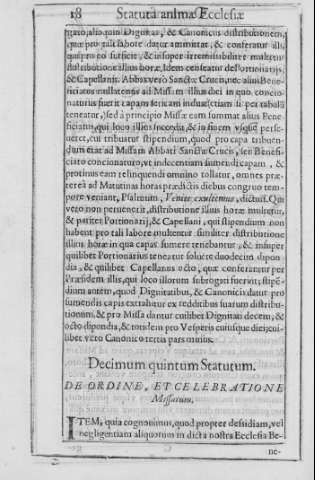 18 Statuta almæ Ecclesiæ
tato, alioquin Dignitas, & Canonicus distributionem,
quæ pro tali labore datur amittat, & conferatur illi,
qui pro eo sufficit, & insuper irremissibiliter mulctur
distributione illius horæ. Idem censeatur de Portionarijs,
& Capellanis. Abbas verò Sanctæ Crucis, nec alius Bene-
ficiatus nullatenus ad Missam illius diei in quo concio-
naturus fuerit capam sericam induat (etiam si per tabulã
teneatur, ) sed à principio Missæ eam summat alius Bene
ficiatus, qui loco illius incedit, & in finem vsque perse-
ueret, cui tribuatur stipendium, quod pro capa tribuen-
dum erat ad Missam Abbati Sanctæ Crucis, seu Benefi-
ciato concionaturo, vt indecentiam sumendi capam, &
protinus eam relinquendi omnino tollatur, omnes præ-
tereà ad Matutinas horas prædictis diebus congruo tem-
pore veniant, Psalmum, Venite exultemus, dicturi. Qui
vero non peruenerit, distributione illius horæ mulctetur,
& pariter Portionarij, & Capellani, qui stipendium non
habent pro tali labore mulctentur similiter distributione
illius horæ in qua capas sumere tenebantur, & insuper
quilibet Portionarius teneatur soluere duodecim dipon
dia, & quilibet Capellanus octo, quæ conferantur per
Præsidem illis, qui loco illorum subrogati fuerint, stipē-
dium autem, quod Dignitatibus, & Canonicis datur pro
sumendis capis extrahitur ex redditibus suarum distribu-
tionum, & pro Missa dantur cuilibet Dignitati decem, &
octo dipondia, & totidem pro Vesperis cuiusque diei, cui-
libet vero Canonico tertia pars minus.
Decimum quintum Statutum.
DE ORDINE, ET CELEBRATIONE
Missarum.
ITEM, quia cognouimus, quod propter desidiam, vel
negligentiam aliquorum in dicta nostra Ecclesia Be-
ne-